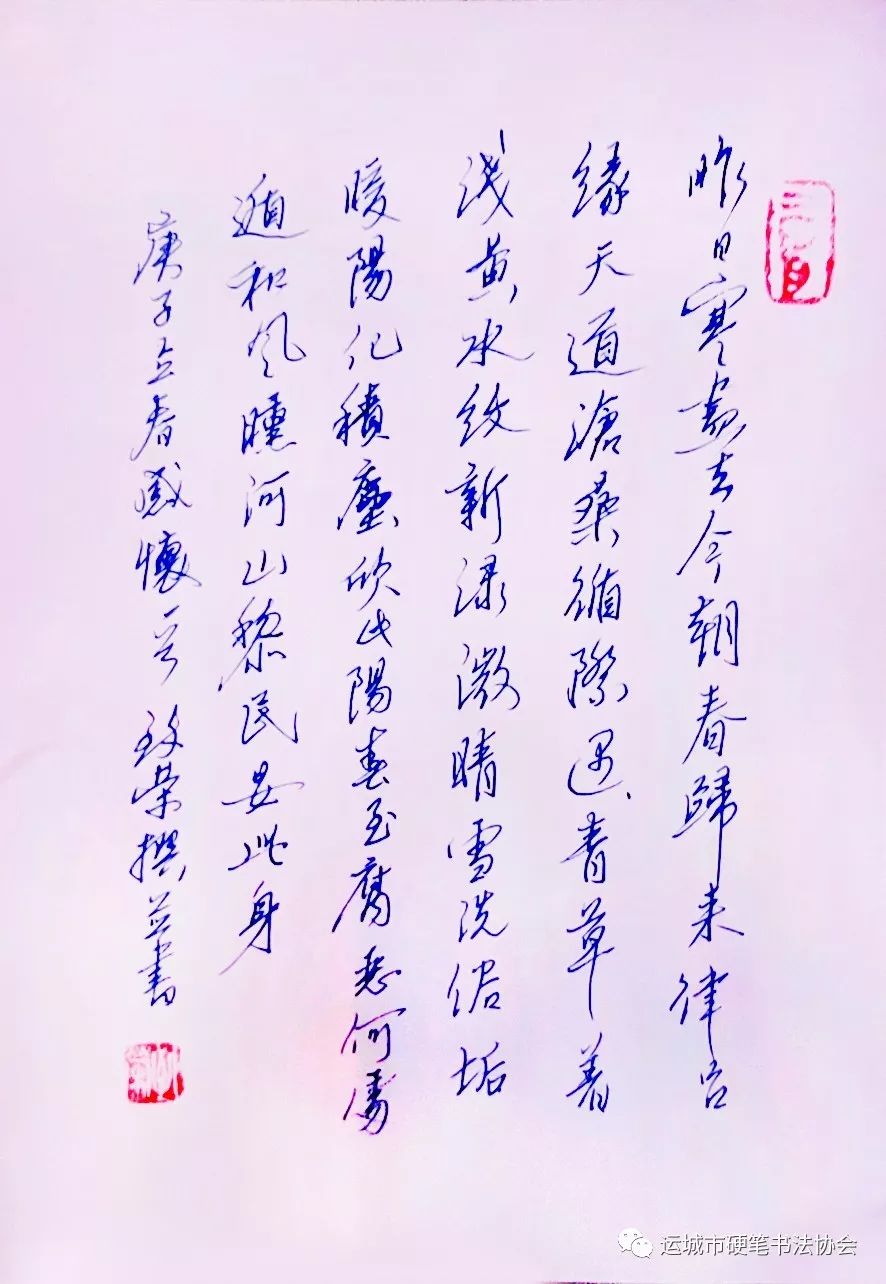 昨日寒寒去今朝春歸来律吕
缘天道滄桑循際遇青草着
浅黄水纹新渌微晴雪洗倨垢
暖陽化積塵欣此陽春至腐惡何處
遁和風曛河山黎民安此身
庚子立春感懷一首 致荣撰並書
运城市硬笔书法协会